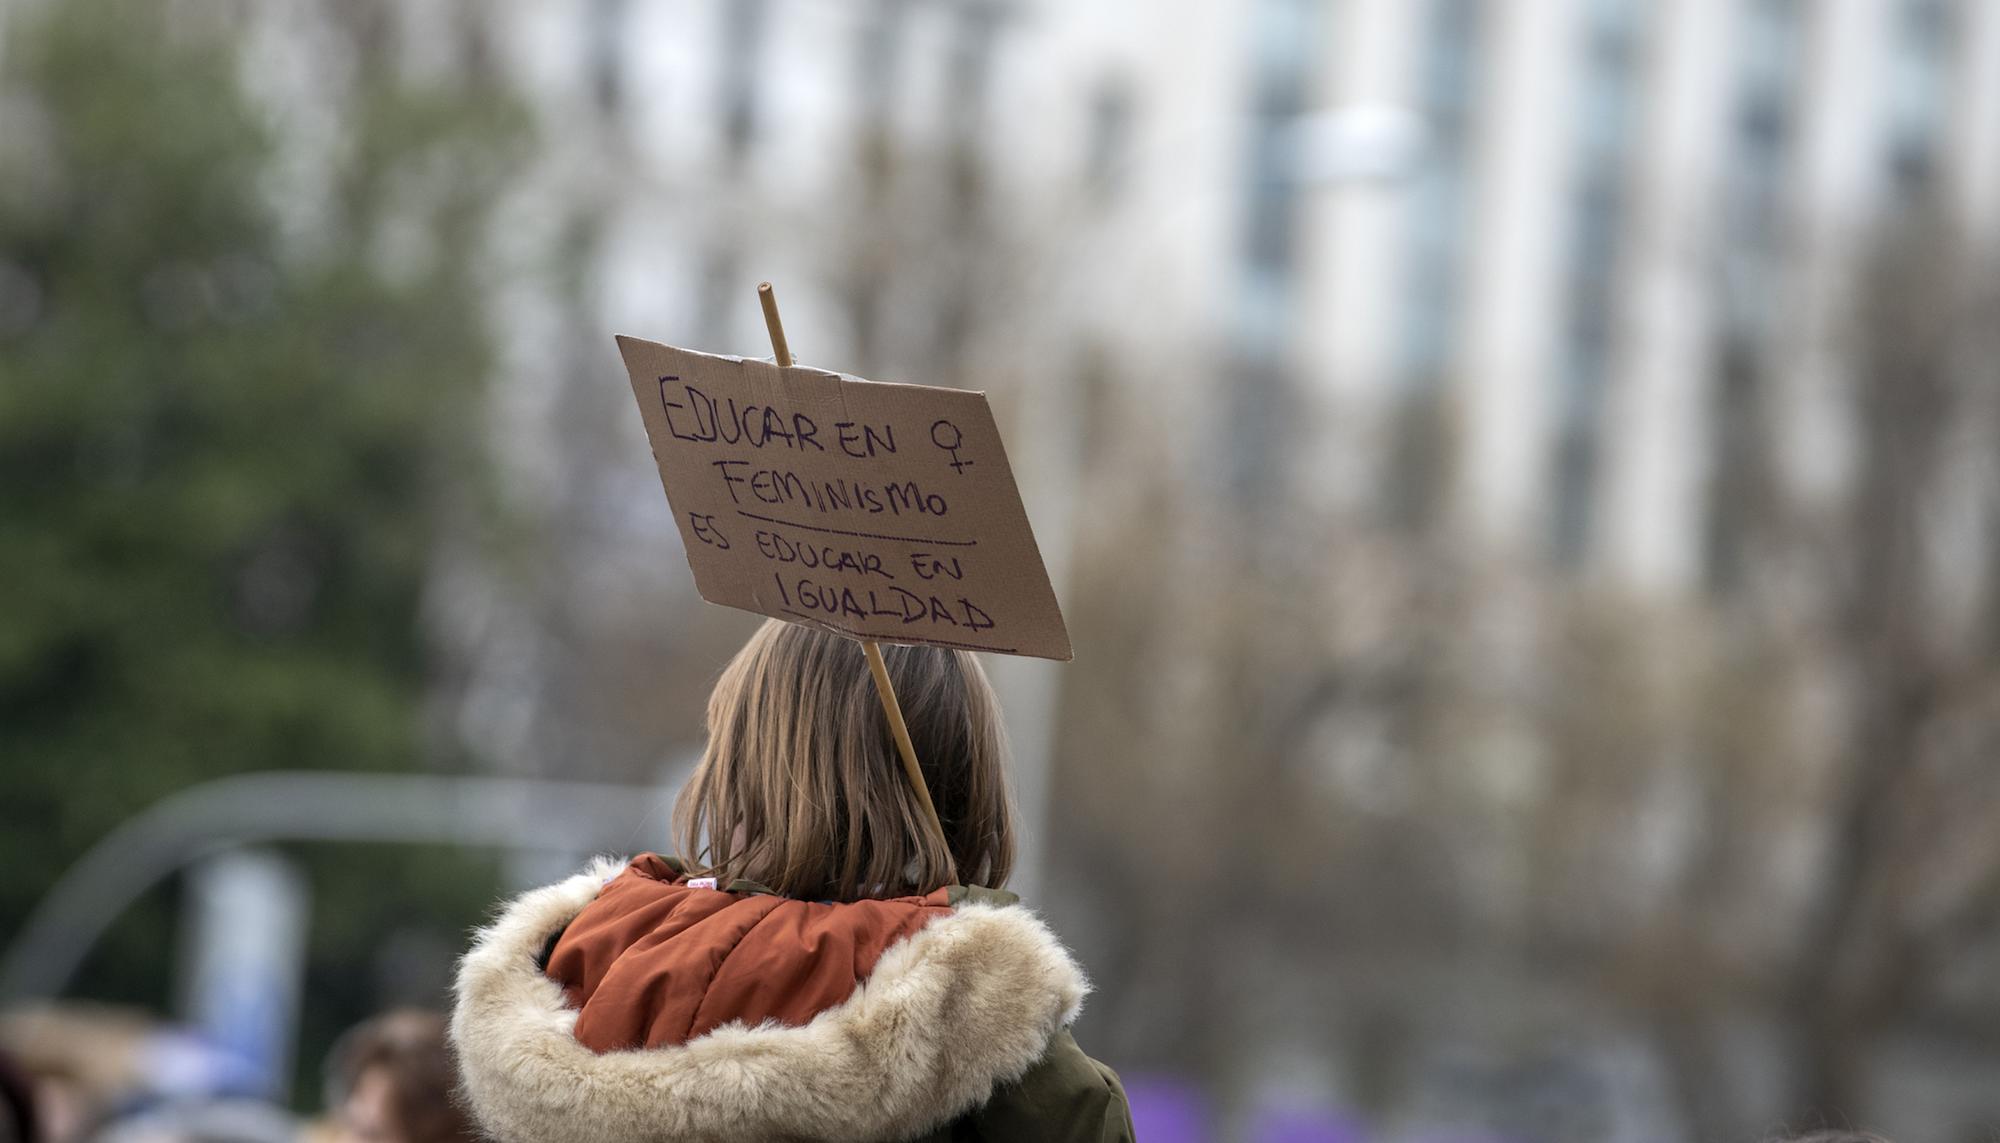 EDUCAR EN ♀
FEMINISMO
ES EDUCAR EN
IGUALDAD